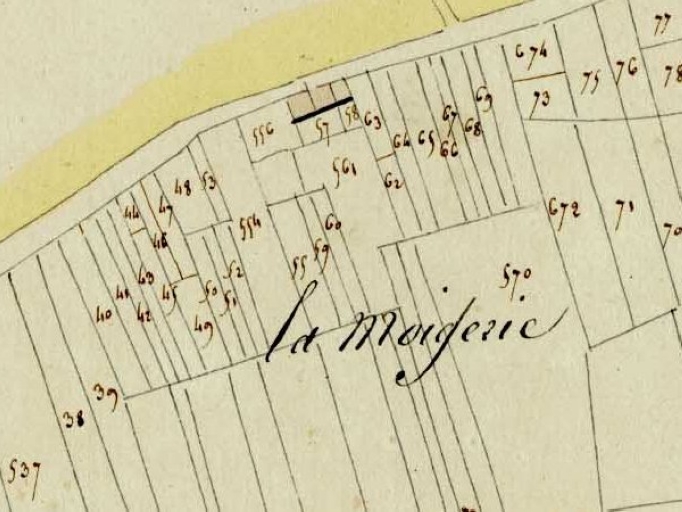 77
674
76
78
75
69
73
58
67
63
57
68
556
64
65
66
561
48
53
62
44
47
672
71
60
554
70
46
59
52
55
43
570
41
45
50
42
51
40
49
la moigerie
39
38
537